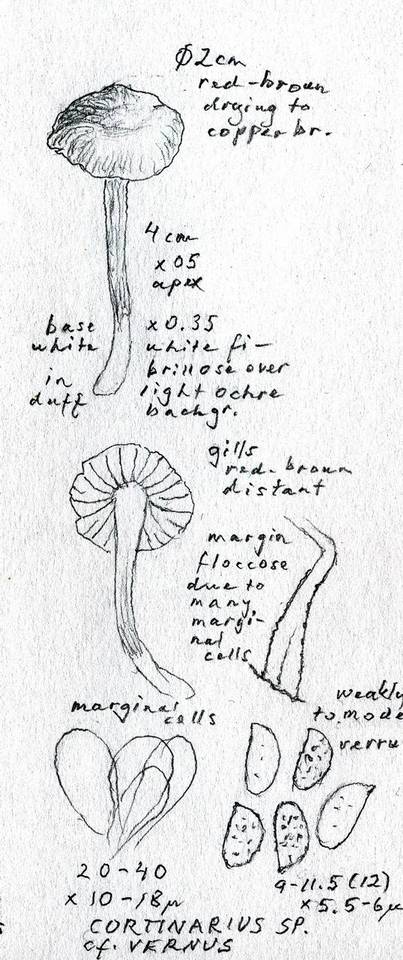 Ø2cm
red-brown
drying to
copper br.
4 cm
x 05
apex
base
white
in
duff
x 0.35
white fi-
brillose over
light ochre
backgr.
gills
red-brown
distant
margin
floccose
due to
many
margi-
nal
cells
marginal
cells
20-40
x 10-18µ
weakly
to mode
verru
9-11.5 (12)
x 5.5-6µ
CORTINARIUS SP.
cf. VERNUS